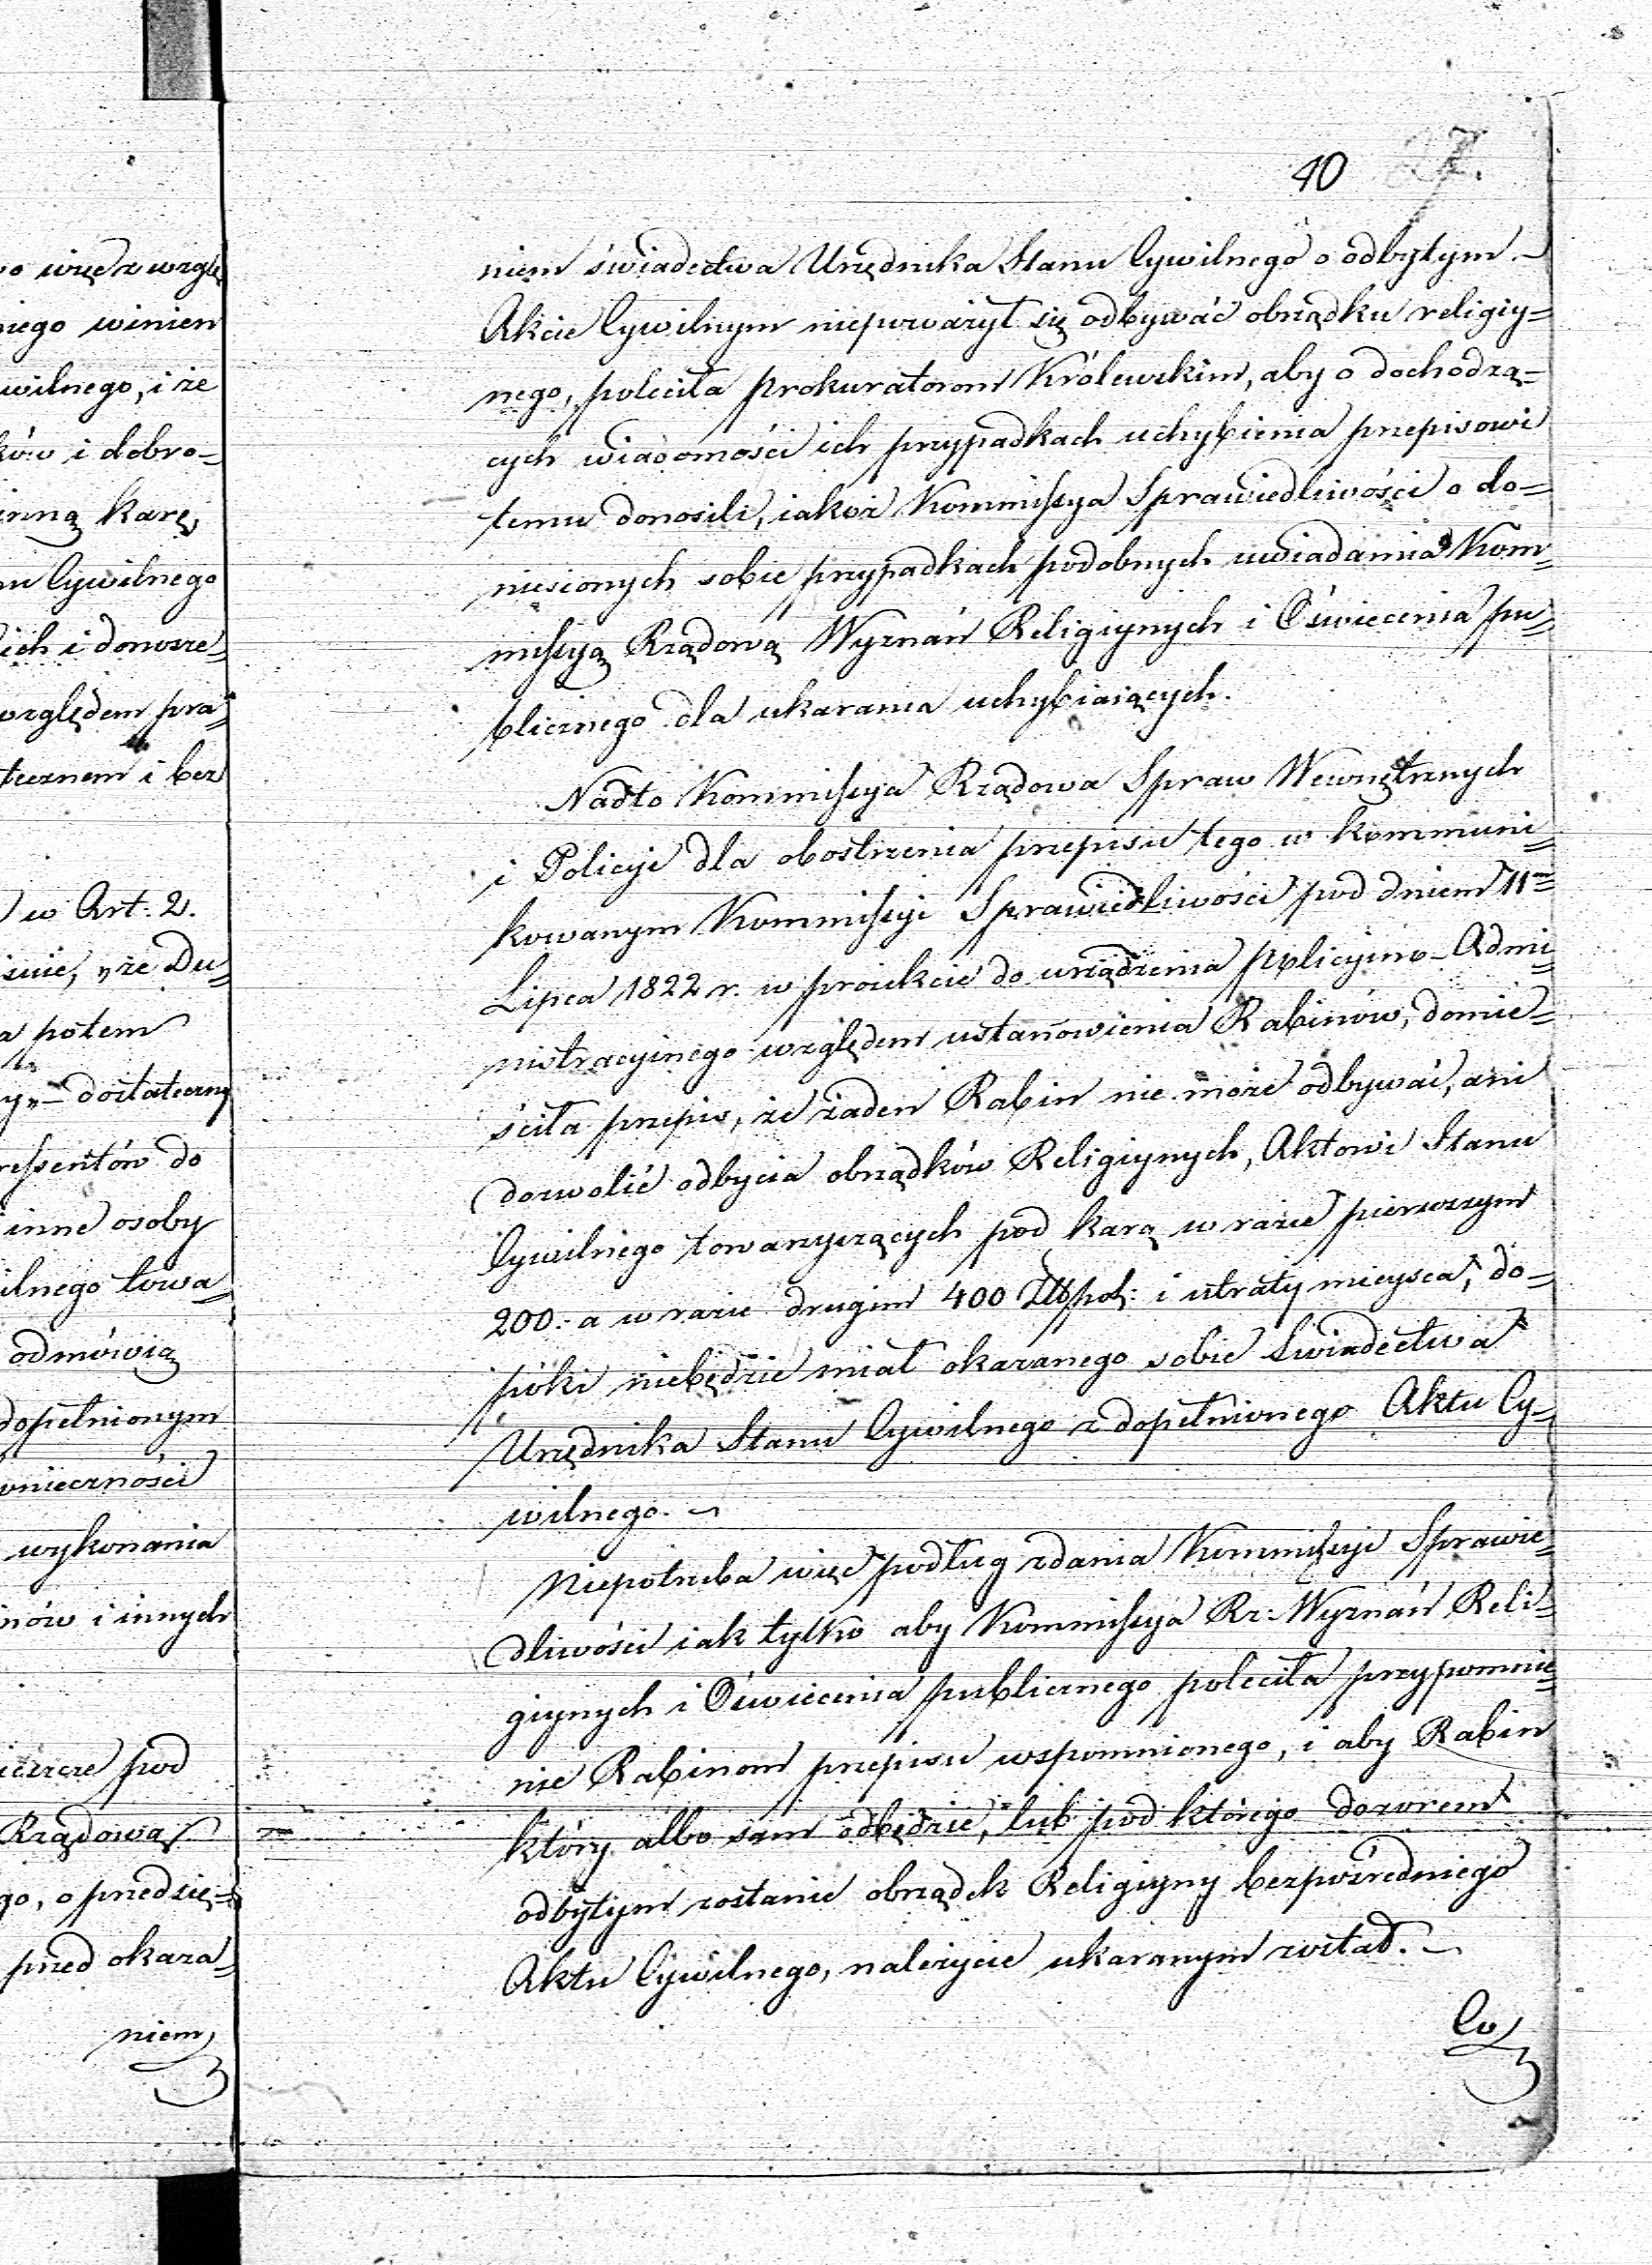 40 27.
niem świadectwa Urzędnika Stanu Cywilnego o odbytym. –
Akcie Cywilnym niepoważył się odbywać obrządku religiy=
nego, poleciła prokuratorom Królewskim, aby o dochodzą=
cych wiadomości ich przypadkach uchybienia przepisowi
temu donosili, iakoż Kommissya Sprawiedliwości o do=
niesionych sobie przypadkach podobnych uwiadamia Kom=
missyą Rządową Wyznań Religiynych i Oświecenia pu=
blicznego dla ukarania uchybiaiących.
Nadto Kommissya Rządowa Spraw Wewnętrznych
i Policyi dla obostrzenia przepisu tego w kommuni=
kowanym Kommissyi Sprawiedliwości pod dniem 11m
Lipca 1822 r. w proiekcie do urządzenia policyino-Admi=
nistracyinego względem ustanowienia Rabinów, domie=
ściła przepis, że żaden Rabin nie może odbywać, ani
dozwolić odbycia obrządków Religiynych, Aktowi Stanu
Cywilnego towarzyszących pod karą w razie pierwszym
200.- a w razie drugim 400 Złłpol: i utraty mieysca, do=
póki niebędzie miał okazanego sobie Świadectwa
Urzędnika Stanu Cywilnego z dopełnionego Aktu Cy=
wilnego. –
Niepotrzeba więc podług zdania Kommissyi Sprawie=
dliwości iak tylko aby Kommissya Rz: Wyznań Reli=
giynych i Oświecenia publicznego poleciła przypomnie=
nie Rabinom przepisu wspomnionego, i aby Rabin
który albo sam odbędzie, lub pod którego dozorem
odbytym zostanie obrządek Religiyny bezpośredniego
Aktu Cywilnego, należycie ukaranym został. –
Co
wię z wzglę
niego winien
wilnego, i że
ków i dobro=
inną karę,
Cywilnego
ich i donosze=
względem pra=
i bez
w Art: 2.
że Du=
potem
dostateczny
do
inne osoby
ilnego towa=
odmówią
dopełnionym
wykonania
i innych
pod
Rządową
go, o przedsię=
przed okaza=
niem